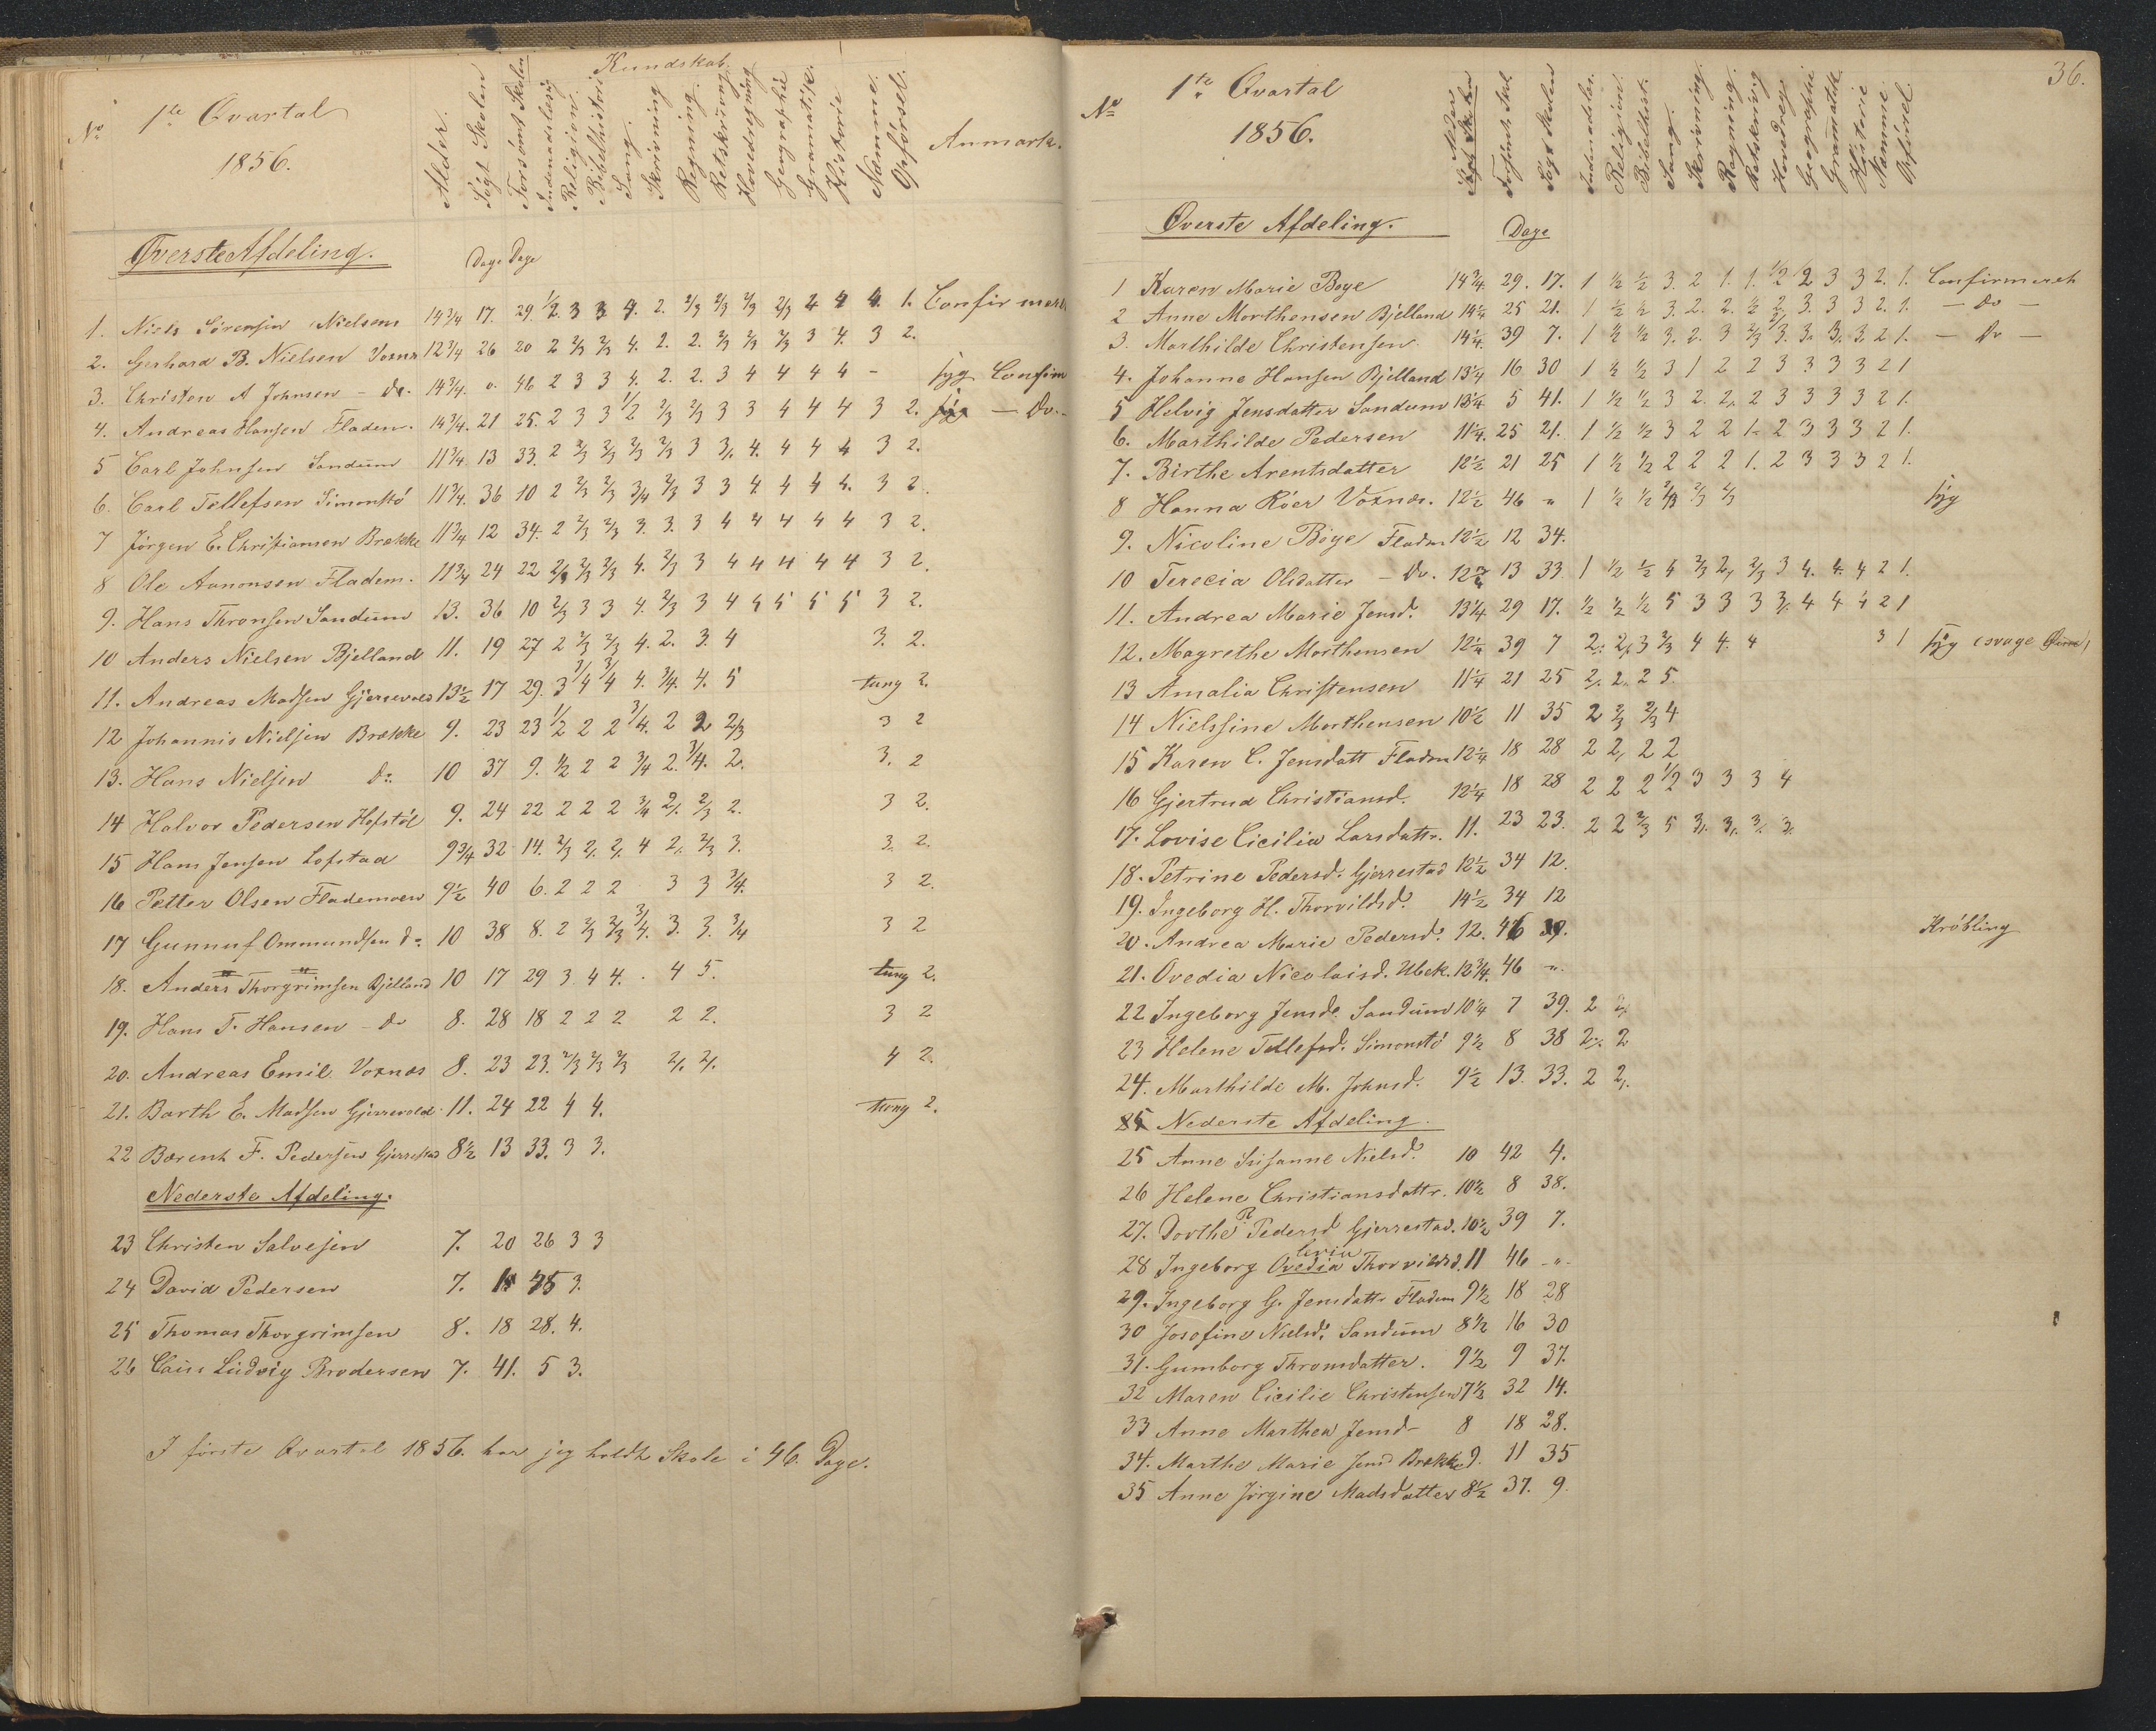 Kundskab.
No 1ste Qvartal
1856.
Alder. Sögt Skolen Forsömt Skolen Indenadslæsnig Religion. Bibelhistori Sang. Skrivning Regning. Retskrivng Hovedregning Geographie Gramatik. Historie Nämme. Opförsel. Anmærk.
Øverste Afdeling. Dage Dage
1. Niels Sörensen Nielsens 14 3/4 17. 29. 1/2. 3 3 4. 2. 2/3 2/3 2/3 2/3 4 4 4. 1. Confirmeret
2. Gerhard B. Nielsen Voxnæs 12 3/4 26 20 2 2/3 2/3 4. 2. 2. 2/3 2/3 2/3 3 4. 3 2.
3. Christen A Johnsen - do. 14 3/4. o. 46 2 3 3 4. 2. 2. 3 4 4 4 4 - syg Confirm
4. Andreas Hansen Fladem. 14 3/4. 21 25. 2 3 3 1/2 2/3 2/3 3 3 4 4 4 3 2. syg - Do. -
5 Carl Johnsen Sandum 11 3/4. 13 33. 2 2/3 2/3 2/3 2/3 3 3/. 4. 4 4 4 3 2.
6. Carl Tellefsen Simonstö 11 3/4. 36 10 2 2/3 2/3 3/4 2/3 3 3 4 4 4 4. 3 2.
7 Jörgen E. Christiansen Brække 11 3/4 12 34. 2 2/3 2/3 3. 3. 3 4 4 4 4 4 3 2.
8 Ole Aanonsen Fladem. 11 3/4 24 22 2/3 2/3 2/3 4. 2/3 3 4 4 4 4 4 3 2.
9. Hans Thronsen Sandum 13. 36 10 2/3 3 3 4. 2/3 3 4 4 5 5 5 3 2.
10 Anders Nielsen Bjelland 11. 19 27 2 2/3 2/3 4. 2. 3. 4 3. 2.
11. Andreas Madsen Gjerrevoes 13 1/2 17 29. 3 3/4 3/4 4. 3/4. 4. 5 tung 2.
12 Johannis Nielsen Brække 9. 23 23 1/2 2 2 3/4. 2 2 2/3 3 2
13. Hans Nielsen do. 10 37 9. 1/2 2 2 3/4 2. 3/4. 2. 3. 2
14 Halvor Pedersen Hofstöl 9. 24 22 2 2 2 3/4 2/. 2/3 2. 3 2.
15 Hans Jensen Lofstad 9 3/4 32 14. 2/3 2/. 2/. 4 2/. 2/3 3. 3. 2.
16 Petter Olsen Flademoen 9 1/2 40 6. 2 2 2 3 3 3/4. 3 2.
17 Gunnuf Ommundsen do. 10 38 8. 2 2/3 2/3 3/4. 3. 3. 3/4 3 2
18. Anders Thorgrimsen Bjelland 10 17 29 3 4 4. . 4 5. tung 2.
19. Hans T. Hansen - do 8. 28 18 2 2 2 2 2. 3 2
20. Andreas Emil Voxnæs 8. 23 23. 2/3 2/3 2/3 2/. 2/. 4 2.
21. Barth E. Madsen Gjerrevold. 11. 24 22 4 4. tung 2.
22 Bærent F. Pedersen Gjerrestad 8 1/2 13 33. 3 3.
Nederste Afdeling.
23 Christen Salvesen 7. 20 26 3 3
24 David Pedersen 7. 3.
25 Thomas Thorgrimsen 8. 18 28. 4.
26 Ludvig Brodersen 7. 41. 5 3.
I förste Qvartal 1856. har jeg holdt Skole i 46. Dage.
36.
No 1ste Qvartal
1856.
Alder Forsömt Skol Sögt Skolen Indenadslæs. Religion. Bibelhist. Sang. Skrivning. Regning. Retskrivng Hovedregn Geographie Gramatik. Historie Nämme. Opförsel.
Øverste Afdeling. Dage
1 Karen Marie Boye 14 3/4 29. 17. 1 1/2 1/2 3. 2 1. 1. 1/2 2 3 3 2. 1. Confirmeret
2 Anne Morthensen Bjelland 14 1/4 25 21. 1 1/2 1/2 3. 2. 2. 1/2 2. 3. 3 3 2. 1. - Do -
3. Marthilde Christensen. 14 1/4. 39 7. 1 1/2 1/2 3. 2. 3 2/3 2/3. 3. 3. 3. 2 1. - Do -
4. Johanne Hansen Bjelland 13 1/4 16 30 1 1/2 1/2 3 1 2 2 3 3 3 3 2 1
5 Helvig Jensdatter Sandum 13 1/4 5 41. 1 1/2 1/2 3 2. 2. 2 3 3 3 3 2 1.
6. Marthilde Pedersen 11 1/4. 25 21. 1 1/2 1/2 3 2 2 1. 2 3 3 3 2 1.
7. Birthe Arentsdatter 12 1/2 21 25 1 1/2 1/2 2 2 2 1. 2 3 3 3 2 1.
8 Hanna Röer Voxnæs. 12 1/2 46 " 1 1/2 1/2 2/3 2/3 2/3 syg
9. Nicoline Boye Fladm 12 1/2 12 34.
10 Terecia Olsdatter - Do. 12 3/4 13 33. 1 1/2 1/2 4 2/3 2/. 2/3 3 4. 4. 4 2 1.
11. Andrea Marie Jensd. 13 1/4 29 17. 1/2 1/2 1/2 5 3 3 3 3/. 4 4 4 2 1
12. Magrethe Morthensen 12 1/4 39 7 2. 2/. 3 2/3 4 4. 4 3 1 syg (svage Øine)
13 Amalia Christensen 11 1/4 21 25 2/. 2. 2 5.
14 Nielssine Morthensen 10 1/2 11 35 2 2/3 2/3 4
15 Karen C. Jensdatt Fladm 12 1/4 18 28 2 2/. 2 2
16 Gjertrud Christiansd. 12 1/4 18 28 2 2 2 1/2 3 3 3 4
17. Lovise Cicilia Larsdattr. 11. 23 23. 2 2 2/3 5 3/. 3/. 3/. 3/.
18. Petrine Pedersd. Gjerrestad 12 1/2 34 12.
19. Ingeborg H. Thorvildsd. 14 1/2 34 12
20. Andrea Marie Pedersd. 12. 46 Kröbling
21. Ovedia Nicolaisd. Ubek. 12 3/4. 46 ".
22 Ingeborg Jensd. Sandum 10 1/4 7 39. 2 2/.
23 Helene Tellefsd. Simonstö 9 1/2 8 38 2/. 2
24. Marthilde M. Johnsd. 9 1/2 13. 33. 2 2/.
Nederste Afdeling.
25 Anne Susanne Nielsd. 10 42 4.
26 Helene Christiansdattr. 10 1/2 8 38.
27. Dorthe R Pedersd Gjerrestad. 10 1/2 39 7.
28 Ingeborg Ovedia Thorvildsd. 11 46 - " -
29. Ingeborg G. Jensdattr Fladem 9 1/2 18 28
30 Josefine Nielsd. Sandum 8 1/2 16 30
31. Gumborg Thronsdatter. 9 1/2 9 37.
32 Maren Cicilie Christensen 7 1/2 32 14.
33 Anne Marthea Jensd- 8 18 28.
34. Marthe Marie Jensd Brække 9. 11 35
35 Anne Jörgine Madsdatter 8 1/2 37. 9.